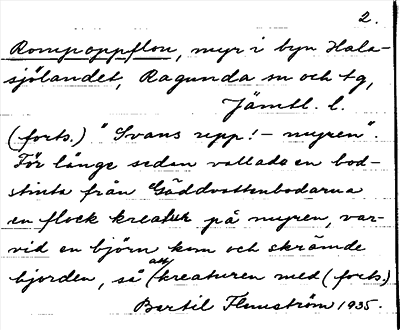 2.
Rompoppflon, myr i byn Hala-
sjölandet, Ragunda sn och tg,
Jämtl. l.
(forts.) "Svans upp! – myren".
För länge sedan vallade en bod-
stinta från Gåddvattenbodarna
en flock kreatur på myren, var-
vid en björn kom och skrämde
hjorden, så att kreaturen med (forts)
Bertil Flemström 1935.